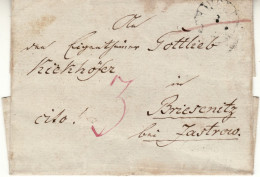 An
den Eigenthümer Gottlieb
Kiekhöfer
in
cito! 3 Briesenitz
bei Jastrow.